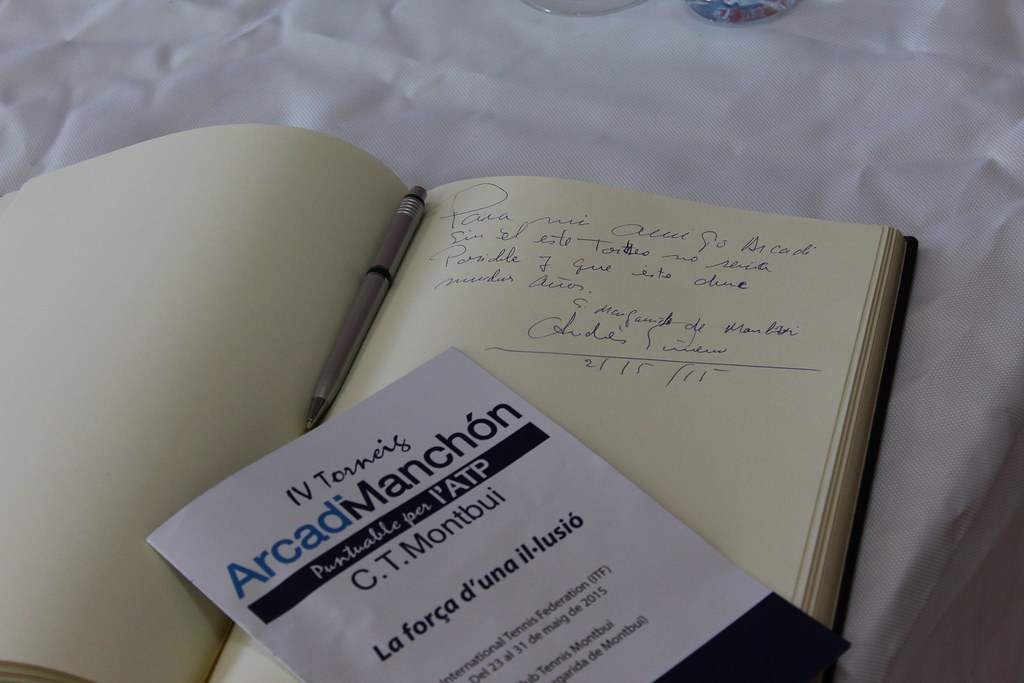 Para mi amigo Arcadi
Sin él este Torneo no sería
Posible y que esto dure
muchos años.
Margarida de Montbui
Andrés Gimeno
21/5/15
IV Torneig
ArcadiManchón
Puntuable per l'ATP
C.T.Montbui
La força d'una il·lusió
International Tennis Federation (ITF)
Del 23 al 31 de maig de 2015
lub Tennis Montbui
argarida de Montbui)